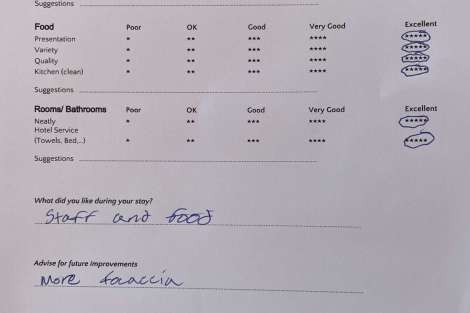 Suggestions
Food Poor OK Good Very Good Excellent
Presentation * ** *** **** *****
Variety * ** *** **** *****
Quality * ** *** **** *****
Kitchen (clean) * ** *** **** *****
Suggestions
Rooms/ Bathrooms Poor OK Good Very Good Excellent
Neatly * ** *** **** *****
Hotel Service
(Towels, Bed,...) * ** *** **** *****
Suggestions
What did you like during your stay?
Staff and food
Advise for future improvements
More focaccia